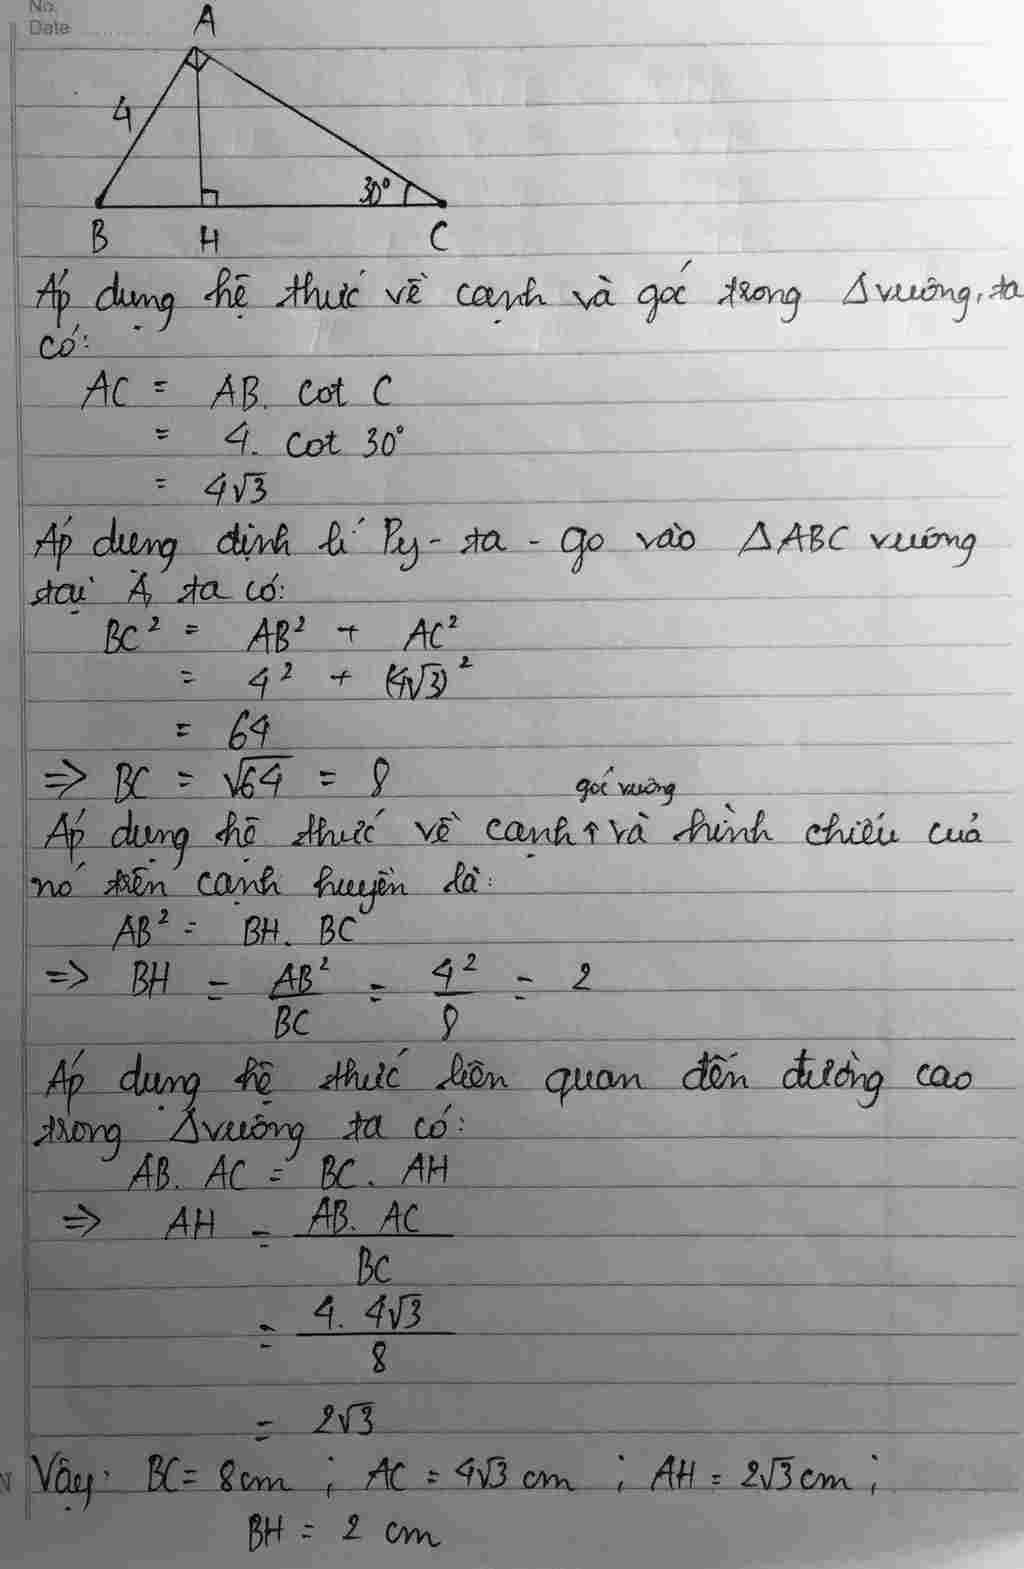 No.
Date
A
4
30°
B H C
Áp dụng hệ thức về cạnh và góc trong Δvuông, ta
có:
AC = AB. cot C
= 4. cot 30°
= 4√3
Áp dụng định lí Py-ta-go vào ΔABC vuông
tại A, ta có:
BC² = AB² + AC²
= 4² + (4√3)²
= 64
=> BC = √64 = 8
góc vuông
Áp dụng hệ thức về cạnh↑và hình chiếu của
nó trên cạnh huyền là:
AB² = BH. BC
=> BH = AB²/BC = 4²/8 = 2
Áp dụng hệ thức liên quan đến đường cao
trong Δvuông ta có:
AB. AC = BC. AH
=> AH = AB. AC/BC
= 4. 4√3/8
= 2√3
Vậy: BC = 8cm ; AC = 4√3 cm ; AH = 2√3 cm ;
BH = 2 cm